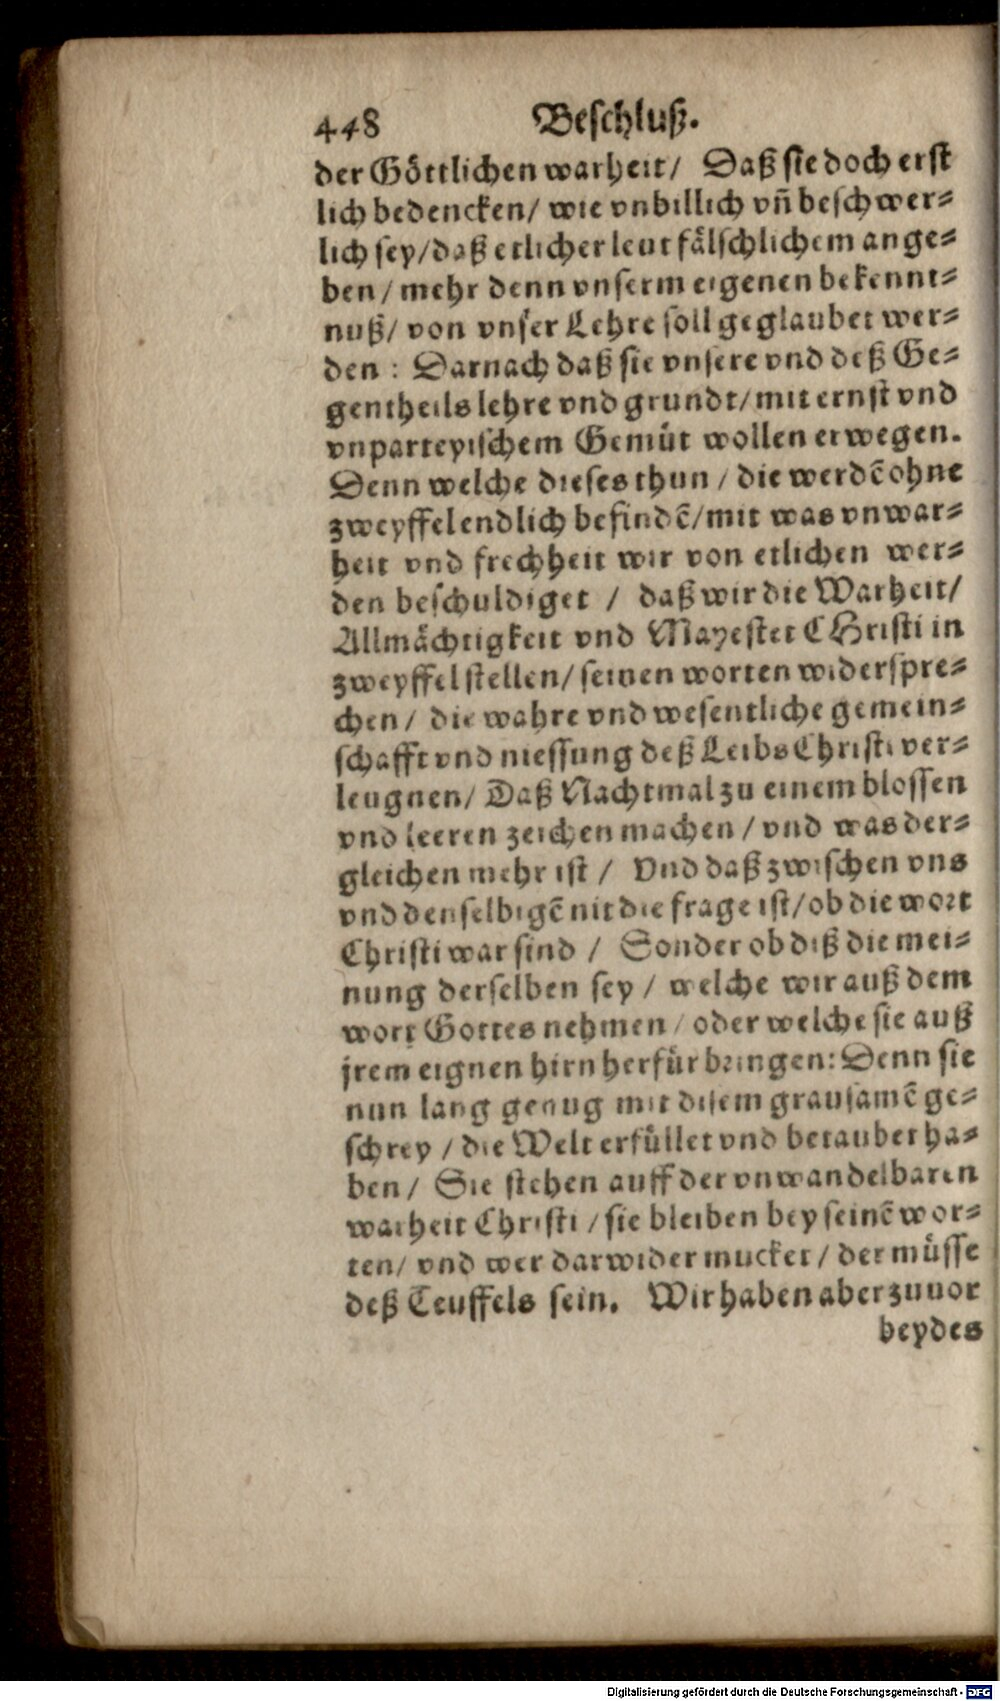 448 Beschluß.
der Göttlichen warheit / Daß sie doch erst
lich bedencken / wie vnbillich vñ beschwer⸗
lich sey / daß etlicher leut fälschlichem ange⸗
ben / mehr denn vnserm eigenen bekennt⸗
nuß / von vnser Lehre soll geglaubet wer⸗
den : Darnach daß sie vnsere vnd deß Ge⸗
gentheils lehre vnd grundt / mit ernst vnd
vnparteyischem Gemüt wollen erwegen.
Denn welche dieses thun / die werdẽ ohne
zweyffel endlich befindẽ / mit was vnwar⸗
heit vnd frechheit wir von etlichen wer⸗
den beschuldiget / daß wir die Warheit /
Allmächtigkeit vnd Mayestet CHristi in
zweyffel stellen / seinen worten widerspre⸗
chen / die wahre vnd wesentliche gemein⸗
schafft vnd niessung deß Leibs Christi ver⸗
leugnen / Daß Nachtmal zu einem blossen
vnd leeren zeichen machen / vnd was der⸗
gleichen mehr ist / Vnd daß zwischen vns
vnd denselbigẽ nit die frage ist / ob die wort
Christi war sind / Sonder ob diß die mei⸗
nung derselben sey / welche wir auß dem
wort Gottes nehmen / oder welche sie auß
jrem eignen hirn herfür bringen: Denn sie
nun lang genug mit disem grausamẽ ge⸗
schrey / die Welt erfüllet vnd betaubet ha⸗
ben / Sie stehen auff der vnwandelbaren
warheit Christi / sie bleiben bey seinẽ wor⸗
ten / vnd wer darwider mucket / der müsse
deß Teuffels sein. Wir haben aber zuuor
beydes
Digitalisierung gefördert durch die Deutsche Forschungsgemeinschaft - DFG